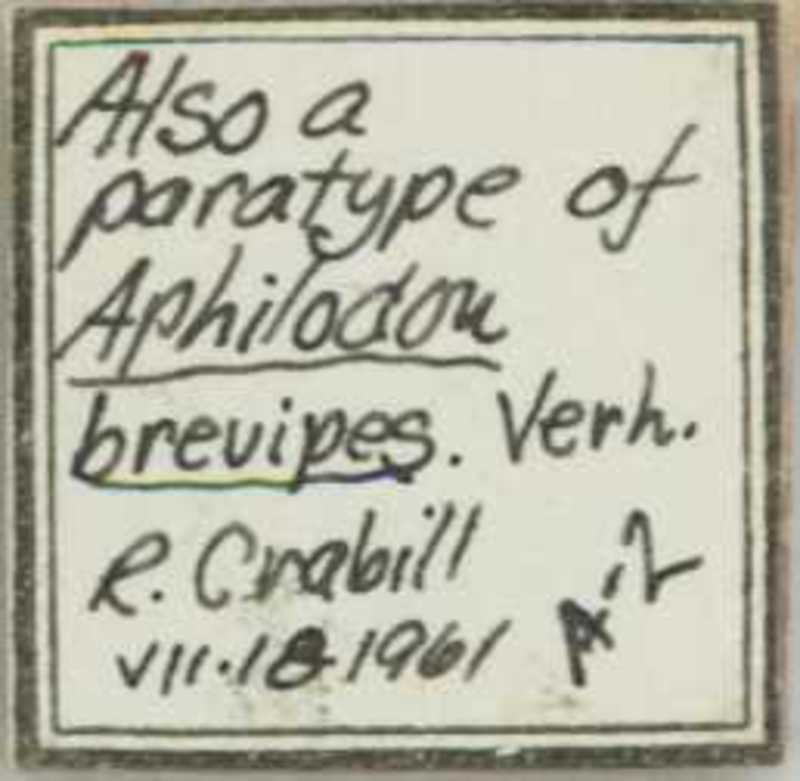 Also a
paratype of
Aphilodon
brevipes. Verh.
R. Crabill
VII.18.1961